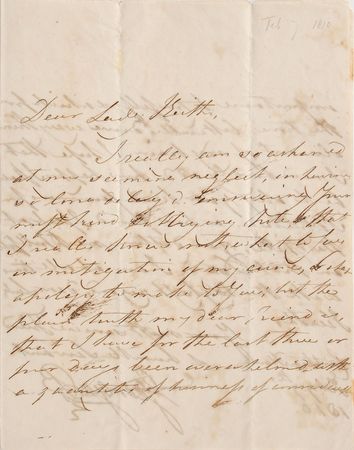 Feb 7 1810
Dear Lady Keith,
I really am so ashamed
at my seeming neglect, in having
so long delay'd answering your
most kind & obliging, note, that
I really know not what to say
in mitigation of my crime, or
apology to make to you, but the
plain truth my dear friend is,
that I have for the last three or
four days been overwhelmed with
a quantities of business of